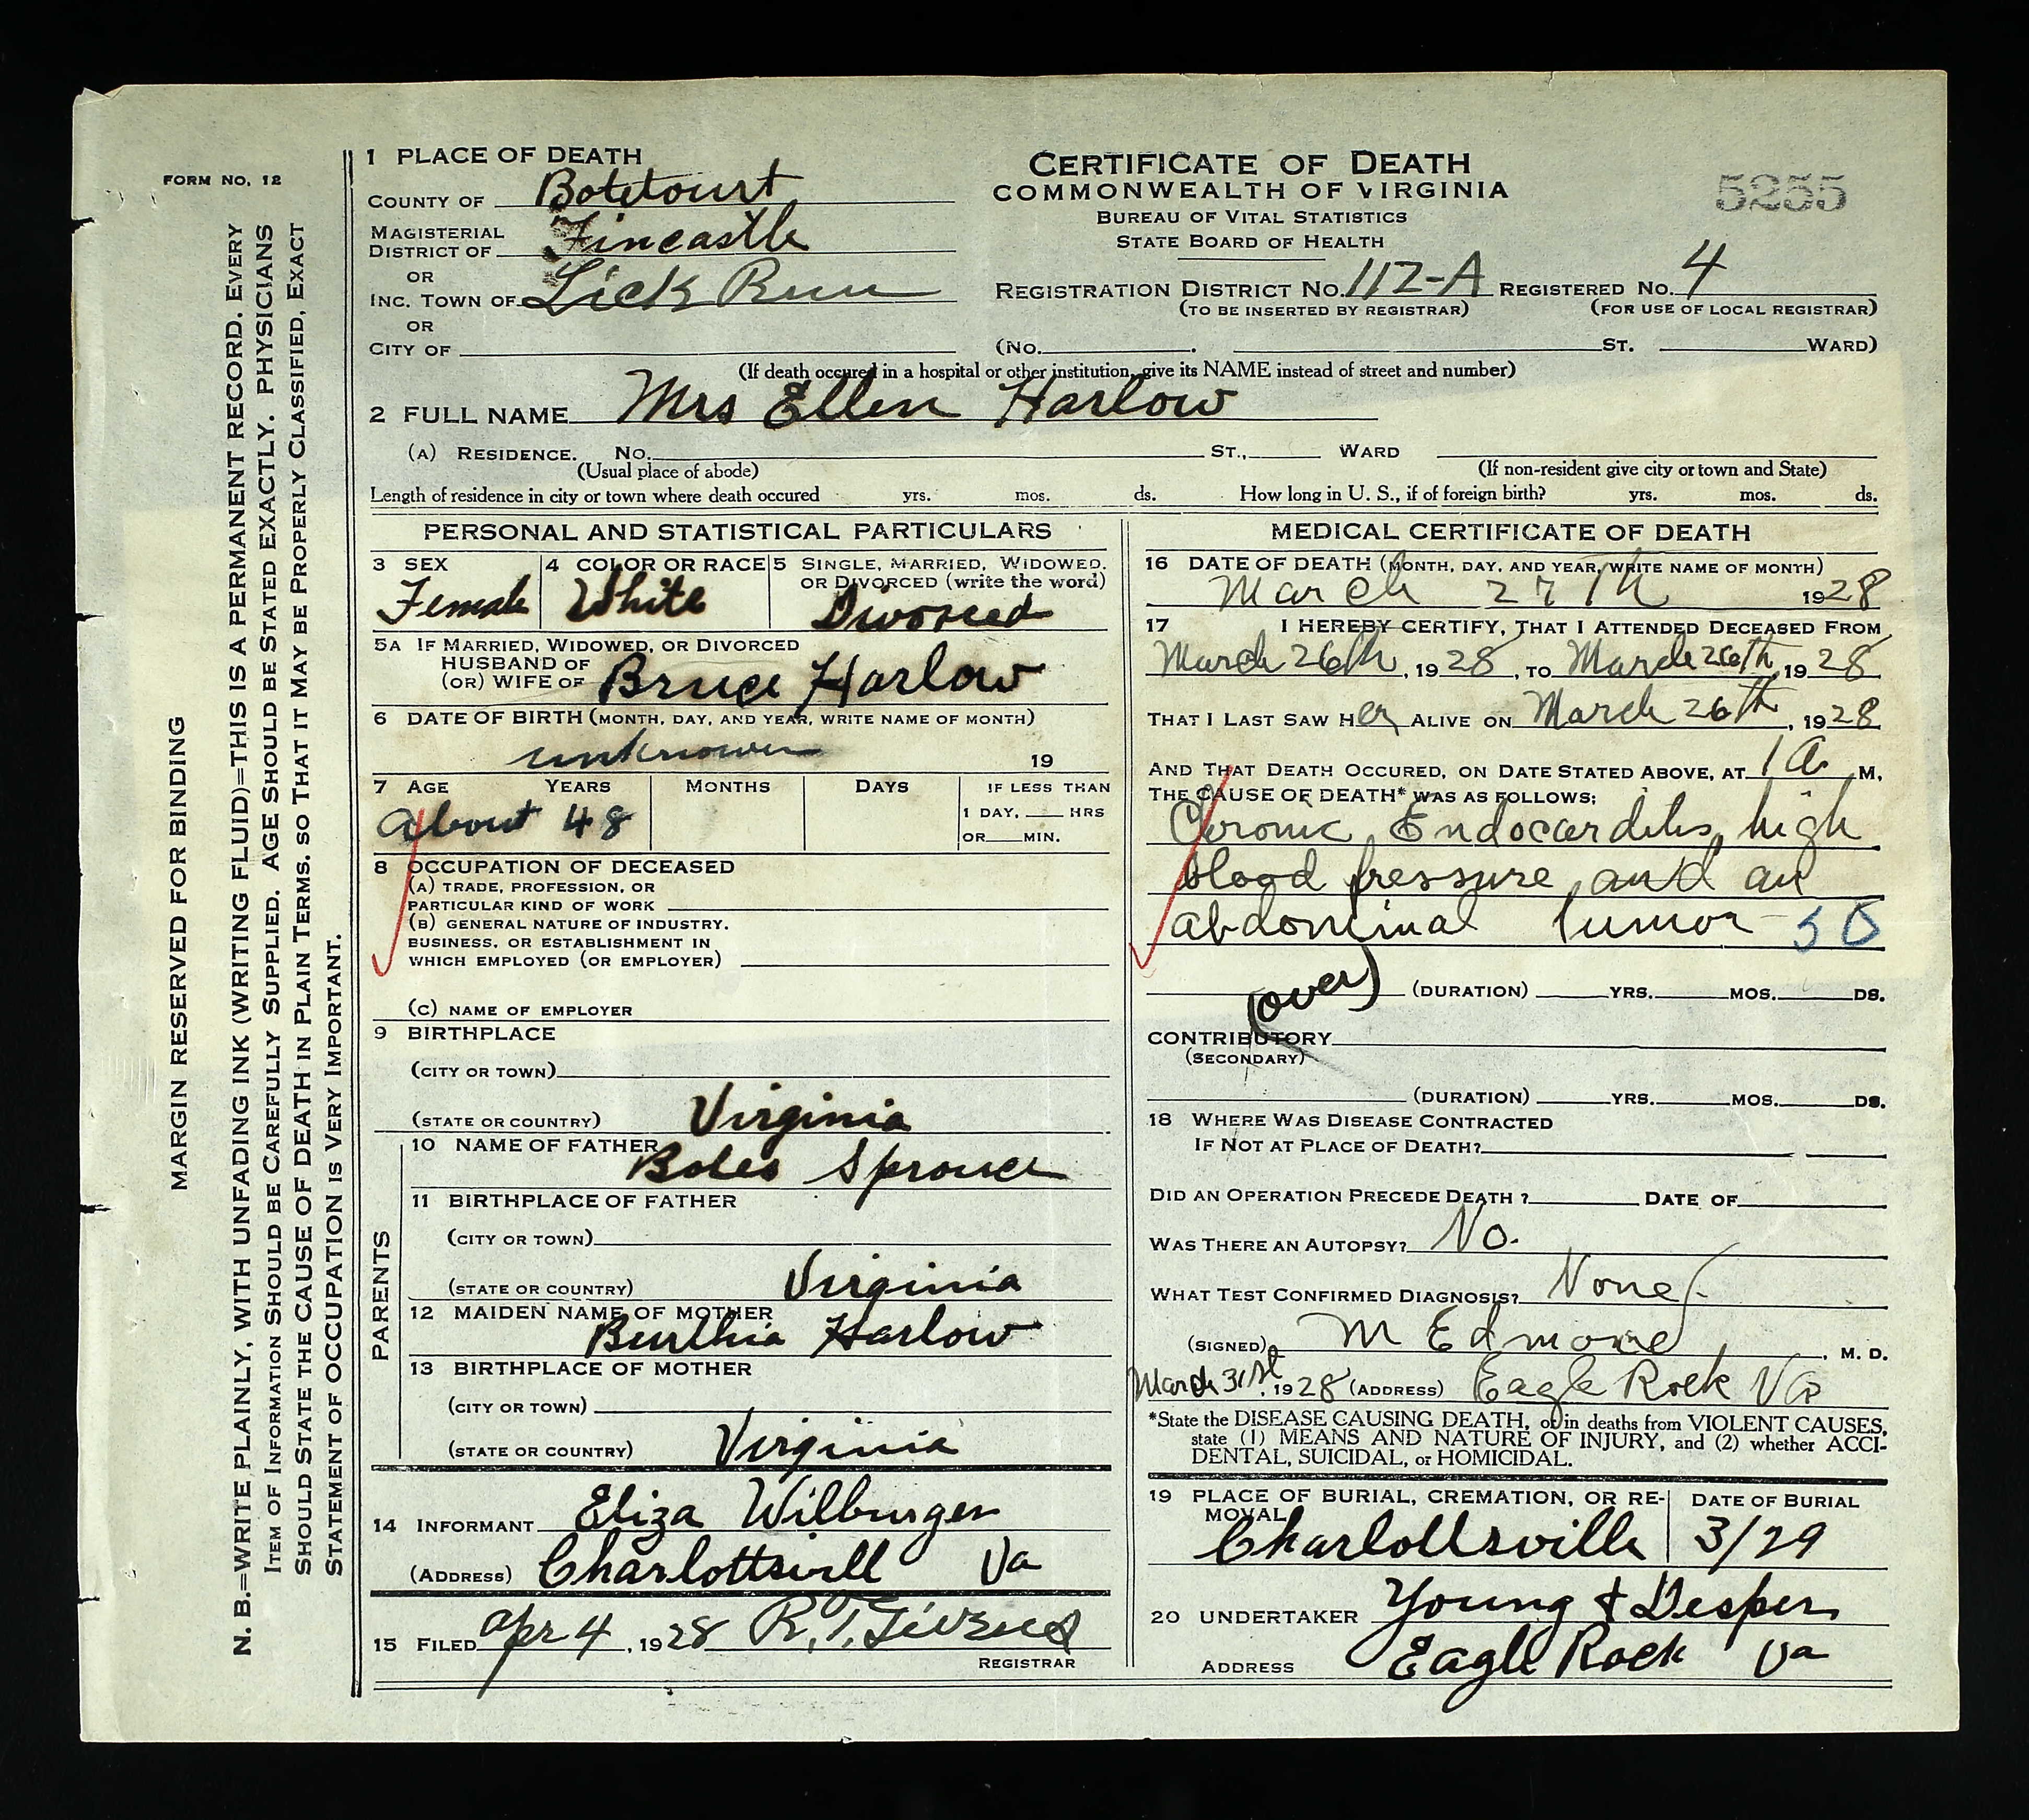 FORM NO. 12
MARGIN RESERVED FOR BINDING
N. B.=WRITE PLAINLY, WITH UNFADING INK (WRITING FLUID)=THIS IS A PERMANENT RECORD. EVERY
ITEM OF INFORMATION SHOULD BE CAREFULLY SUPPLIED. AGE SHOULD BE STATED EXACTLY. PHYSICIANS
SHOULD STATE THE CAUSE OF DEATH IN PLAIN TERMS. SO THAT IT MAY BE PROPERLY CLASSIFIED, EXACT
STATEMENT OF OCCUPATION IS VERY IMPORTANT.
1 PLACE OF DEATH
COUNTY OF Botetourt
MAGISTERIAL
DISTRICT OF Fincastle
OR
INC. TOWN OF Lick Run
OR
CITY OF
CERTIFICATE OF DEATH
COMMONWEALTH OF VIRGINIA
BUREAU OF VITAL STATISTICS
STATE BOARD OF HEALTH
5255
REGISTRATION DISTRICT NO. 112-A REGISTERED NO. 4
(TO BE INSERTED BY REGISTRAR) (FOR USE OF LOCAL REGISTRAR)
(NO. ST. WARD)
(If death occured in a hospital or other institution, give its NAME instead of street and number)
2 FULL NAME Mrs Ellen Harlow
(A) RESIDENCE. NO. ST., WARD
(Usual place of abode) (If non-resident give city or town and State)
Length of residence in city or town where death occured yrs. mos. ds. How long in U. S., if of foreign birth? yrs. mos. ds.
PERSONAL AND STATISTICAL PARTICULARS
3 SEX 4 COLOR OR RACE 5 SINGLE, MARRIED, WIDOWED.
OR DIVORCED (write the word)
Female White Divorced
5A IF MARRIED, WIDOWED, OR DIVORCED
HUSBAND OF
(OR) WIFE OF Bruce Harlow
6 DATE OF BIRTH (MONTH, DAY, AND YEAR, WRITE NAME OF MONTH)
unknown 19
7 AGE YEARS MONTHS DAYS IF LESS THAN
1 DAY, HRS
OR MIN.
About 48
8 OCCUPATION OF DECEASED
(A) TRADE, PROFESSION, OR
PARTICULAR KIND OF WORK
(B) GENERAL NATURE OF INDUSTRY.
BUSINESS. OR ESTABLISHMENT IN
WHICH EMPLOYED (OR EMPLOYER)
(C) NAME OF EMPLOYER
9 BIRTHPLACE
(CITY OR TOWN)
(STATE OR COUNTRY) Virginia
PARENTS
10 NAME OF FATHER
Boles Sprouce
11 BIRTHPLACE OF FATHER
(CITY OR TOWN)
(STATE OR COUNTRY) Virginia
12 MAIDEN NAME OF MOTHER
Burthia Harlow
13 BIRTHPLACE OF MOTHER
(CITY OR TOWN)
(STATE OR COUNTRY) Virginia
14 INFORMANT Eliza Wilburger
(ADDRESS) Charlottsvill Va
15 FILED Apr 4, 1928 R.T. Givens
REGISTRAR
MEDICAL CERTIFICATE OF DEATH
16 DATE OF DEATH (MONTH, DAY, AND YEAR, WRITE NAME OF MONTH)
March 27th 1928
17 I HEREBY CERTIFY, THAT I ATTENDED DECEASED FROM
March 26th, 1928, TO March 26th, 1928
THAT I LAST SAW Her ALIVE ON March 26th, 1928
AND THAT DEATH OCCURED, ON DATE STATED ABOVE, AT 1 a. M.
THE CAUSE OF DEATH* WAS AS FOLLOWS:
Cronic Endocarditis, high
blood pressure, and an
abdominal tumor
(over) (DURATION) YRS. MOS. DS.
CONTRIBUTORY
(SECONDARY)
(DURATION) YRS. MOS. DS.
18 WHERE WAS DISEASE CONTRACTED
IF NOT AT PLACE OF DEATH?
DID AN OPERATION PRECEDE DEATH ? DATE OF
WAS THERE AN AUTOPSY? No.
WHAT TEST CONFIRMED DIAGNOSIS? None.
(SIGNED) M Edmond, M. D.
March 31st, 1928 (ADDRESS) Eagle Rock Va
*State the DISEASE CAUSING DEATH, or in deaths from VIOLENT CAUSES,
state (1) MEANS AND NATURE OF INJURY, and (2) whether ACCI-
DENTAL, SUICIDAL, or HOMICIDAL.
19 PLACE OF BURIAL, CREMATION, OR RE- DATE OF BURIAL
MOVAL
Charlottsville 3/29
20 UNDERTAKER Young & Desper
ADDRESS Eagle Rock Va